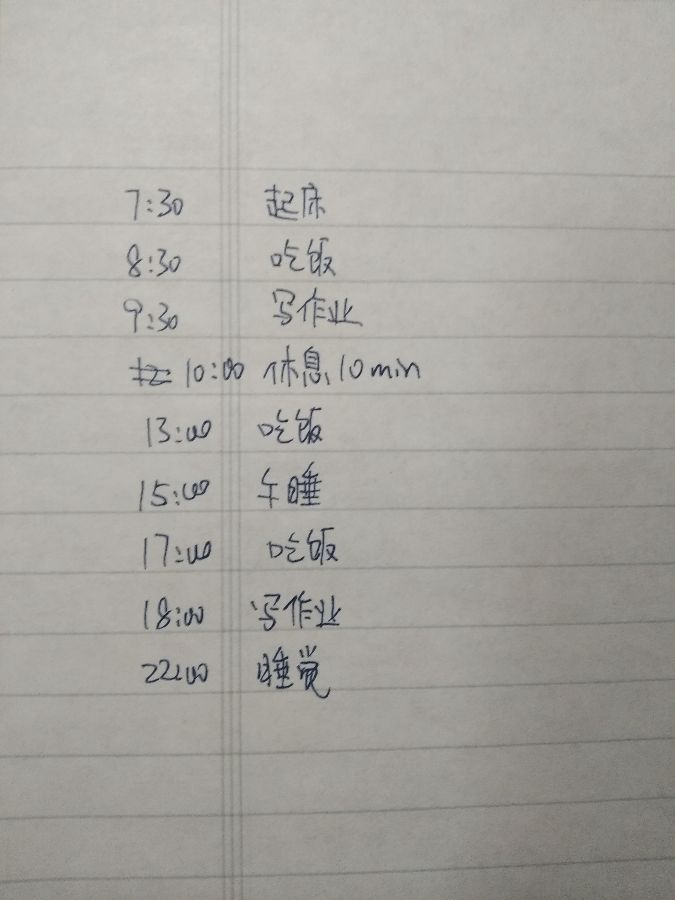 7:30 起床
8:30 吃饭
9:30 写作业
10:00 休息10min
13:00 吃饭
15:00 午睡
17:00 吃饭
18:00 写作业
22:00 睡觉